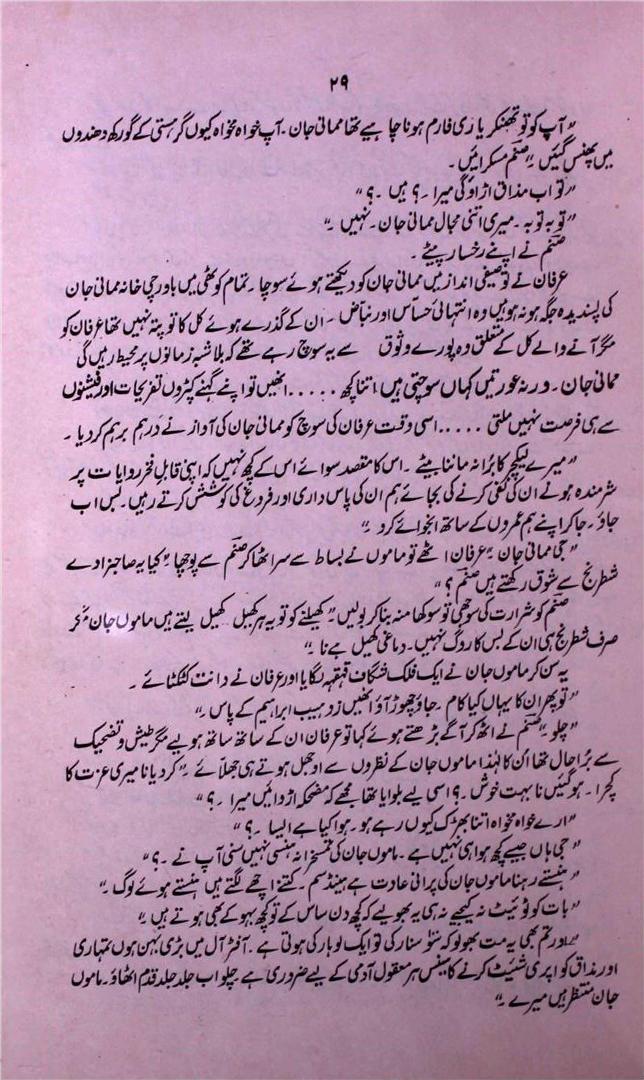 ۲۹
"آپ کو تو تھنکر یا ری فارم ہونا چاہیے تھا ممانی جان۔ آپ خواہ مخواہ کیوں گرہستی کے گورکھ دھندوں
میں پھنس گئیں۔" صنم مسکرائیں۔
"تو اب مذاق اڑاؤ گی میرا۔؟ ہیں۔؟"
"توبہ توبہ۔ میری اتنی مجال ممانی جان۔ نہیں۔"
صنم نے اپنے رخسار پیٹے۔
عرفان نے توصیفی انداز میں ممانی جان کو دیکھتے ہوئے سوچا۔ تمام کوٹھی میں باورچی خانہ ممانی جان
کی پسندیدہ جگہ ہو نہ ہو ہیں وہ انتہائی حساس اور نباض۔ ان کے گذرے ہوئے کل کا تو پتہ نہیں تھا عرفان کو
مگر آنے والے کل کے متعلق وہ پورے وثوق سے یہ سوچ رہے تھے کہ بلاشبہ زمانوں پر محیط رہیں گی
ممانی جان۔ ورنہ عورتیں کہاں سوچتی ہیں اتنا کچھ ..... انھیں تو اپنے گہنے کپڑوں تفریحات اور فیشنوں
سے ہی فرصت نہیں ملتی .... اسی وقت عرفان کی سوچ کو ممانی جان کی آواز نے درہم برہم کر دیا۔
"میرے لیکچر کا برا نہ ماننا بیٹے۔ اس کا مقصد سوائے اس کے کچھ نہیں کہ اپنی قابلِ فخر روایات پر
شرمندہ ہونے ان کی نفی کرنے کی بجائے ہم ان کی پاس داری اور فروغ کی کوشش کرتے رہیں۔ بس اب
جاؤ۔ جا کر اپنے ہم عمروں کے ساتھ انجوائے کرو۔"
"جی ممانی جان۔" عرفان اٹھے تو ماموں نے بساط سے سر اٹھا کر صنم سے پوچھا۔ "کیا یہ صاحبزادے
شطرنج سے شوق رکھتے ہیں صنم؟"
صنم کو شرارت کی سوجھی تو سوکھا منہ بنا کر بولیں۔ "کھیلنے کو تو یہ ہر کھیل کھیل لیتے ہیں ماموں جان مگر
صرف شطرنج ہی ان کے بس کا روگ نہیں۔ دماغی کھیل ہے نا۔"
یہ سن کر ماموں جان نے ایک فلک شگاف قہقہہ لگایا اور عرفان نے دانت کٹکٹائے۔
"تو پھر ان کا یہاں کیا کام۔ جاؤ چھوڑ آؤ انھیں زوہیب ابراہیم کے پاس۔"
"چلو۔" صنم نے اٹھ کر آگے بڑھتے ہوئے کہا تو عرفان ان کے ساتھ ساتھ ہو لیے مگر طیش و تضحیک
سے برا حال تھا ان کا لہٰذا ماموں جان کے نظروں سے اوجھل ہوتے ہی جھلائے۔ "کر دیا نا میری عزت کا
کچرا۔ ہو گئیں نا بہت خوش۔؟ اسی لیے بلوایا تھا مجھے کہ مضحکہ اڑوائیں میرا۔؟"
"ارے خواہ مخواہ اتنا بھڑک کیوں رہے ہو۔ ہوا کیا ہے ایسا۔؟"
"جی ہاں جیسے کچھ ہوا ہی نہیں ہے۔ ماموں جان کی تمسخرانہ ہنسی نہیں سنی آپ نے۔؟"
"ہنستے رہنا ماموں جان کی پرانی عادت ہے ہینڈسم۔ کتنے اچھے لگتے ہیں ہنستے ہوئے لوگ۔"
"بات کو ٹوئیٹ نہ کیجیے نہ ہی یہ بھولیے کہ کچھ دن ساس کے تو کچھ بہو کے بھی ہوتے ہیں۔"
"اور تم بھی یہ مت بھولو کہ سو سنار کی تو ایک لوہار کی ہوتی ہے۔ آفٹر آل میں بڑی بہن ہوں تمہاری
اور مذاق کو اپری شئیٹ کرنے کا سینس ہر معقول آدمی کے لیے ضروری ہے چلو اب جلد جلد قدم اٹھاؤ۔ ماموں
جان منتظر ہیں میرے۔"